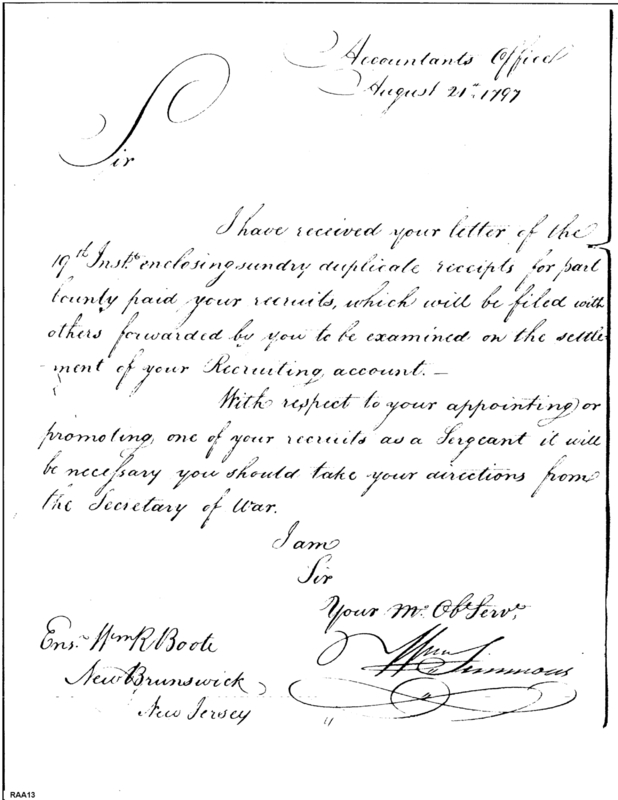 Accountants Office
August 21st. 1797
Sir
I have received your letter of the
19th Inst. enclosing sundry duplicate receipts for part
bounty paid your recruits, which will be filed with
others forwarded by you to be examined on the settle-
ment of your Recruiting account. —
With respect to your appointing or
promoting, one of your recruits as a Sergeant it will
be necessary you should take your directions from
the Secretary of War.
I am
Sir
Your Mo. Obt. Servt.
Wm Simmons
Ens. Wm R Boote
New Brunswick
New Jersey
RAA13